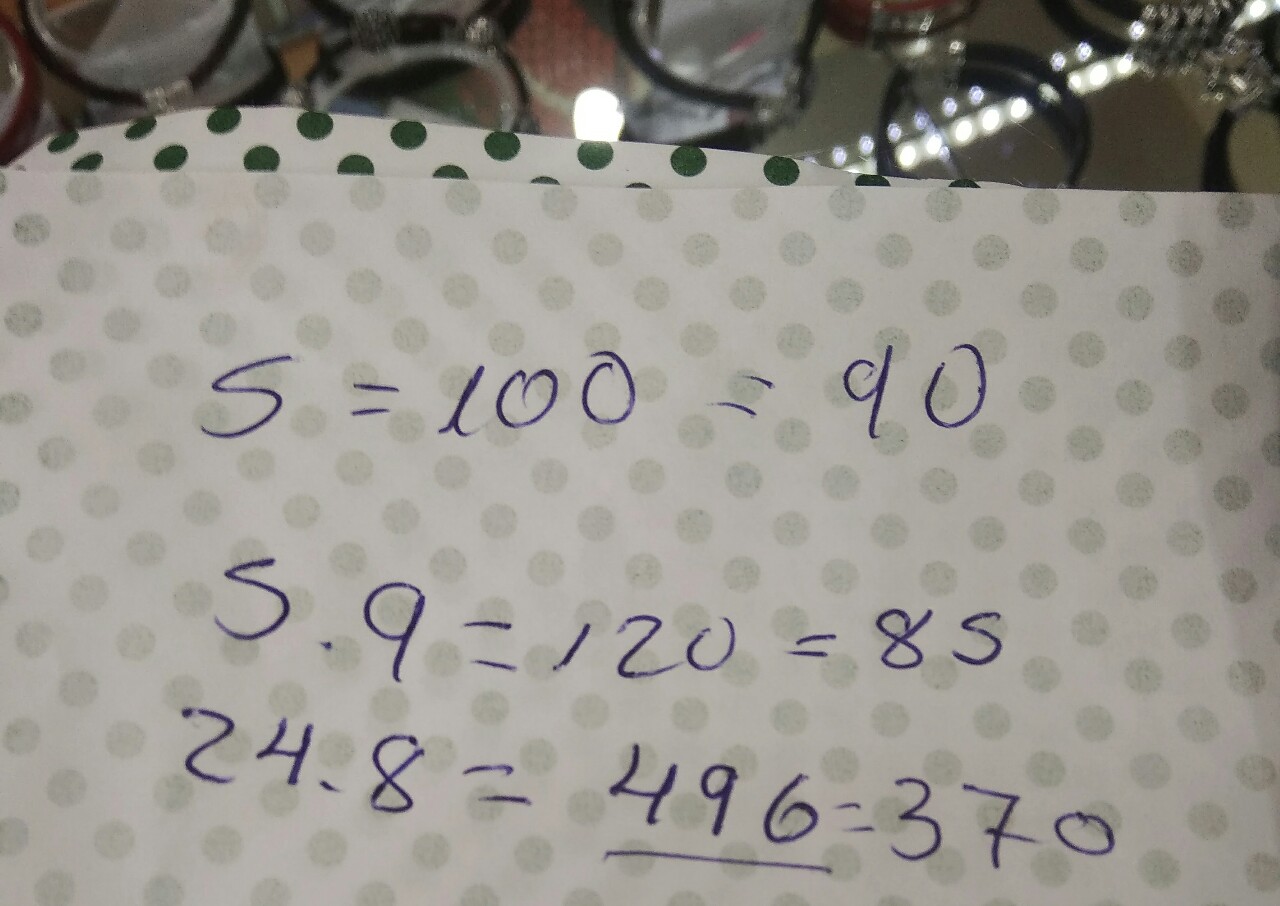 5 = 100 = 90
5.9 = 120 = 85
24.8 = 496 = 370